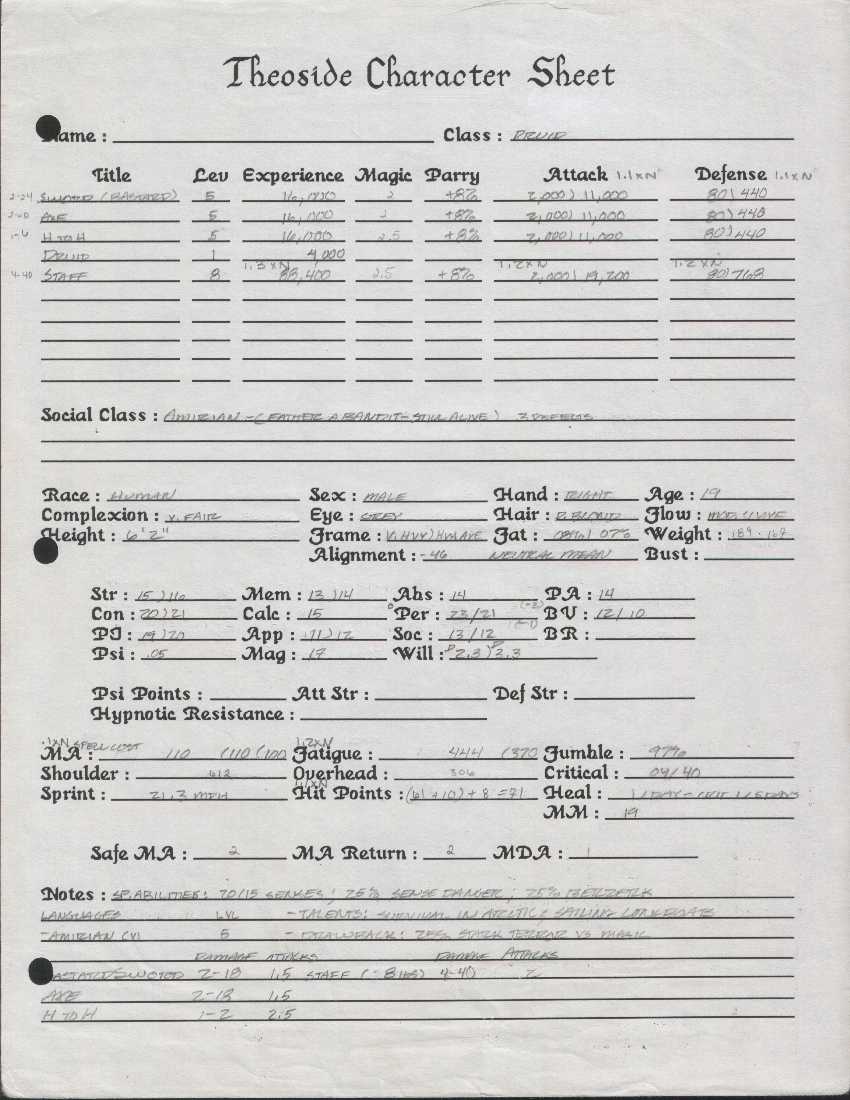 Theoside Character Sheet
Name : Class : DRUID
Title Lev Experience Magic Parry Attack 1.1xN Defense 1.1xN
2-24 SWORD (BASTARD) 5 16,000 2 +8% 2,000) 11,000 80) 440
2-20 AXE 5 16,000 2 +8% 2,000) 11,000 80) 440
1-6 H TO H 5 16,000 2.5 +8% 2,000) 11,000 80) 440
DRUID 1 4,000
1.3xN 1.2xN 1.2xN
4-40 STAFF 8 83,400 2.5 +8% 2,000) 19,200 80) 768
Social Class : AMIRIAN - (FATHER A BANDIT - STILL ALIVE) 2 DEFECTS
Race : HUMAN Sex : MALE Hand : RIGHT Age : 19
Complexion : V. FAIR Eye : GREY Hair : D. BLOND Flow :
Height : 6'2" Frame : V. HVY) HVY Fat : 07% Weight : 189 . 167
Alignment : -46 NEUTRAL MEAN Bust :
Str : 15) 16 Mem : 13) 14 Abs : 14 PA : 14
Con : 20) 21 Calc : 15 Per : 23/21 (-2) BV : 12/10
PJ : 19) 20 App : 11) 12 Soc : 13/12 (-1) BR :
Psi : .05 Mag : 17 Will : 2.3) 2.3
Psi Points : Att Str : Def Str :
Hypnotic Resistance :
.1xN SPELL COST 1.2xN
MA : 110 (110 (100 Fatigue : 444 (370 Fumble : 97%
Shoulder : 612 Overhead : 306 Critical : 04/40
Sprint : 21.3 MPH Hit Points : (61 + 10) + 8 = 71 Heal : 1/DAY -
MM : 19
Safe MA : 2 MA Return : 2 MDA : 1
Notes : SP. ABILITIES: 20/15 SENSES; 25% SENSE DANGER; 25% BERZERK
LANGUAGES LVL - TALENTS: SURVIVAL IN ARCTIC; SAILING LONGBOATS
-AMIRIAN 5 - DRAWBACK: 25% STARK TERROR VS MAGIC
DAMAGE ATTACKS DAMAGE ATTACKS
BASTARD SWORD 2-18 1.5 STAFF (-8 lbs) 4-40 2
AXE 2-18 1.5
H TO H 1-2 2.5